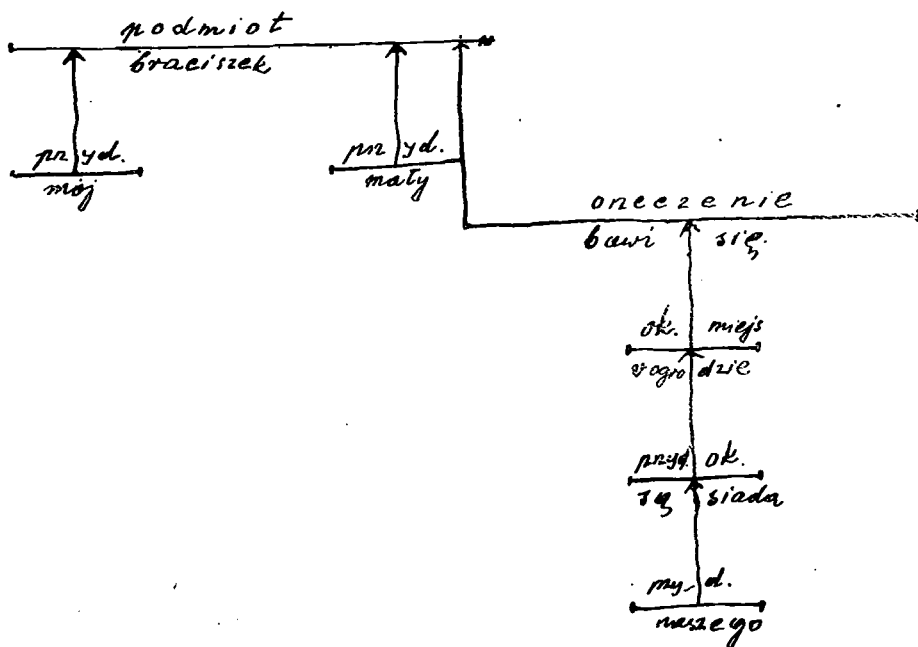 podmiot
braciszek
przyd.
mój
przyd.
mały
orzeczenie
bawi się.
ok. miejs
w ogrodzie
przyd. ok.
sąsiada
przyd.
naszego